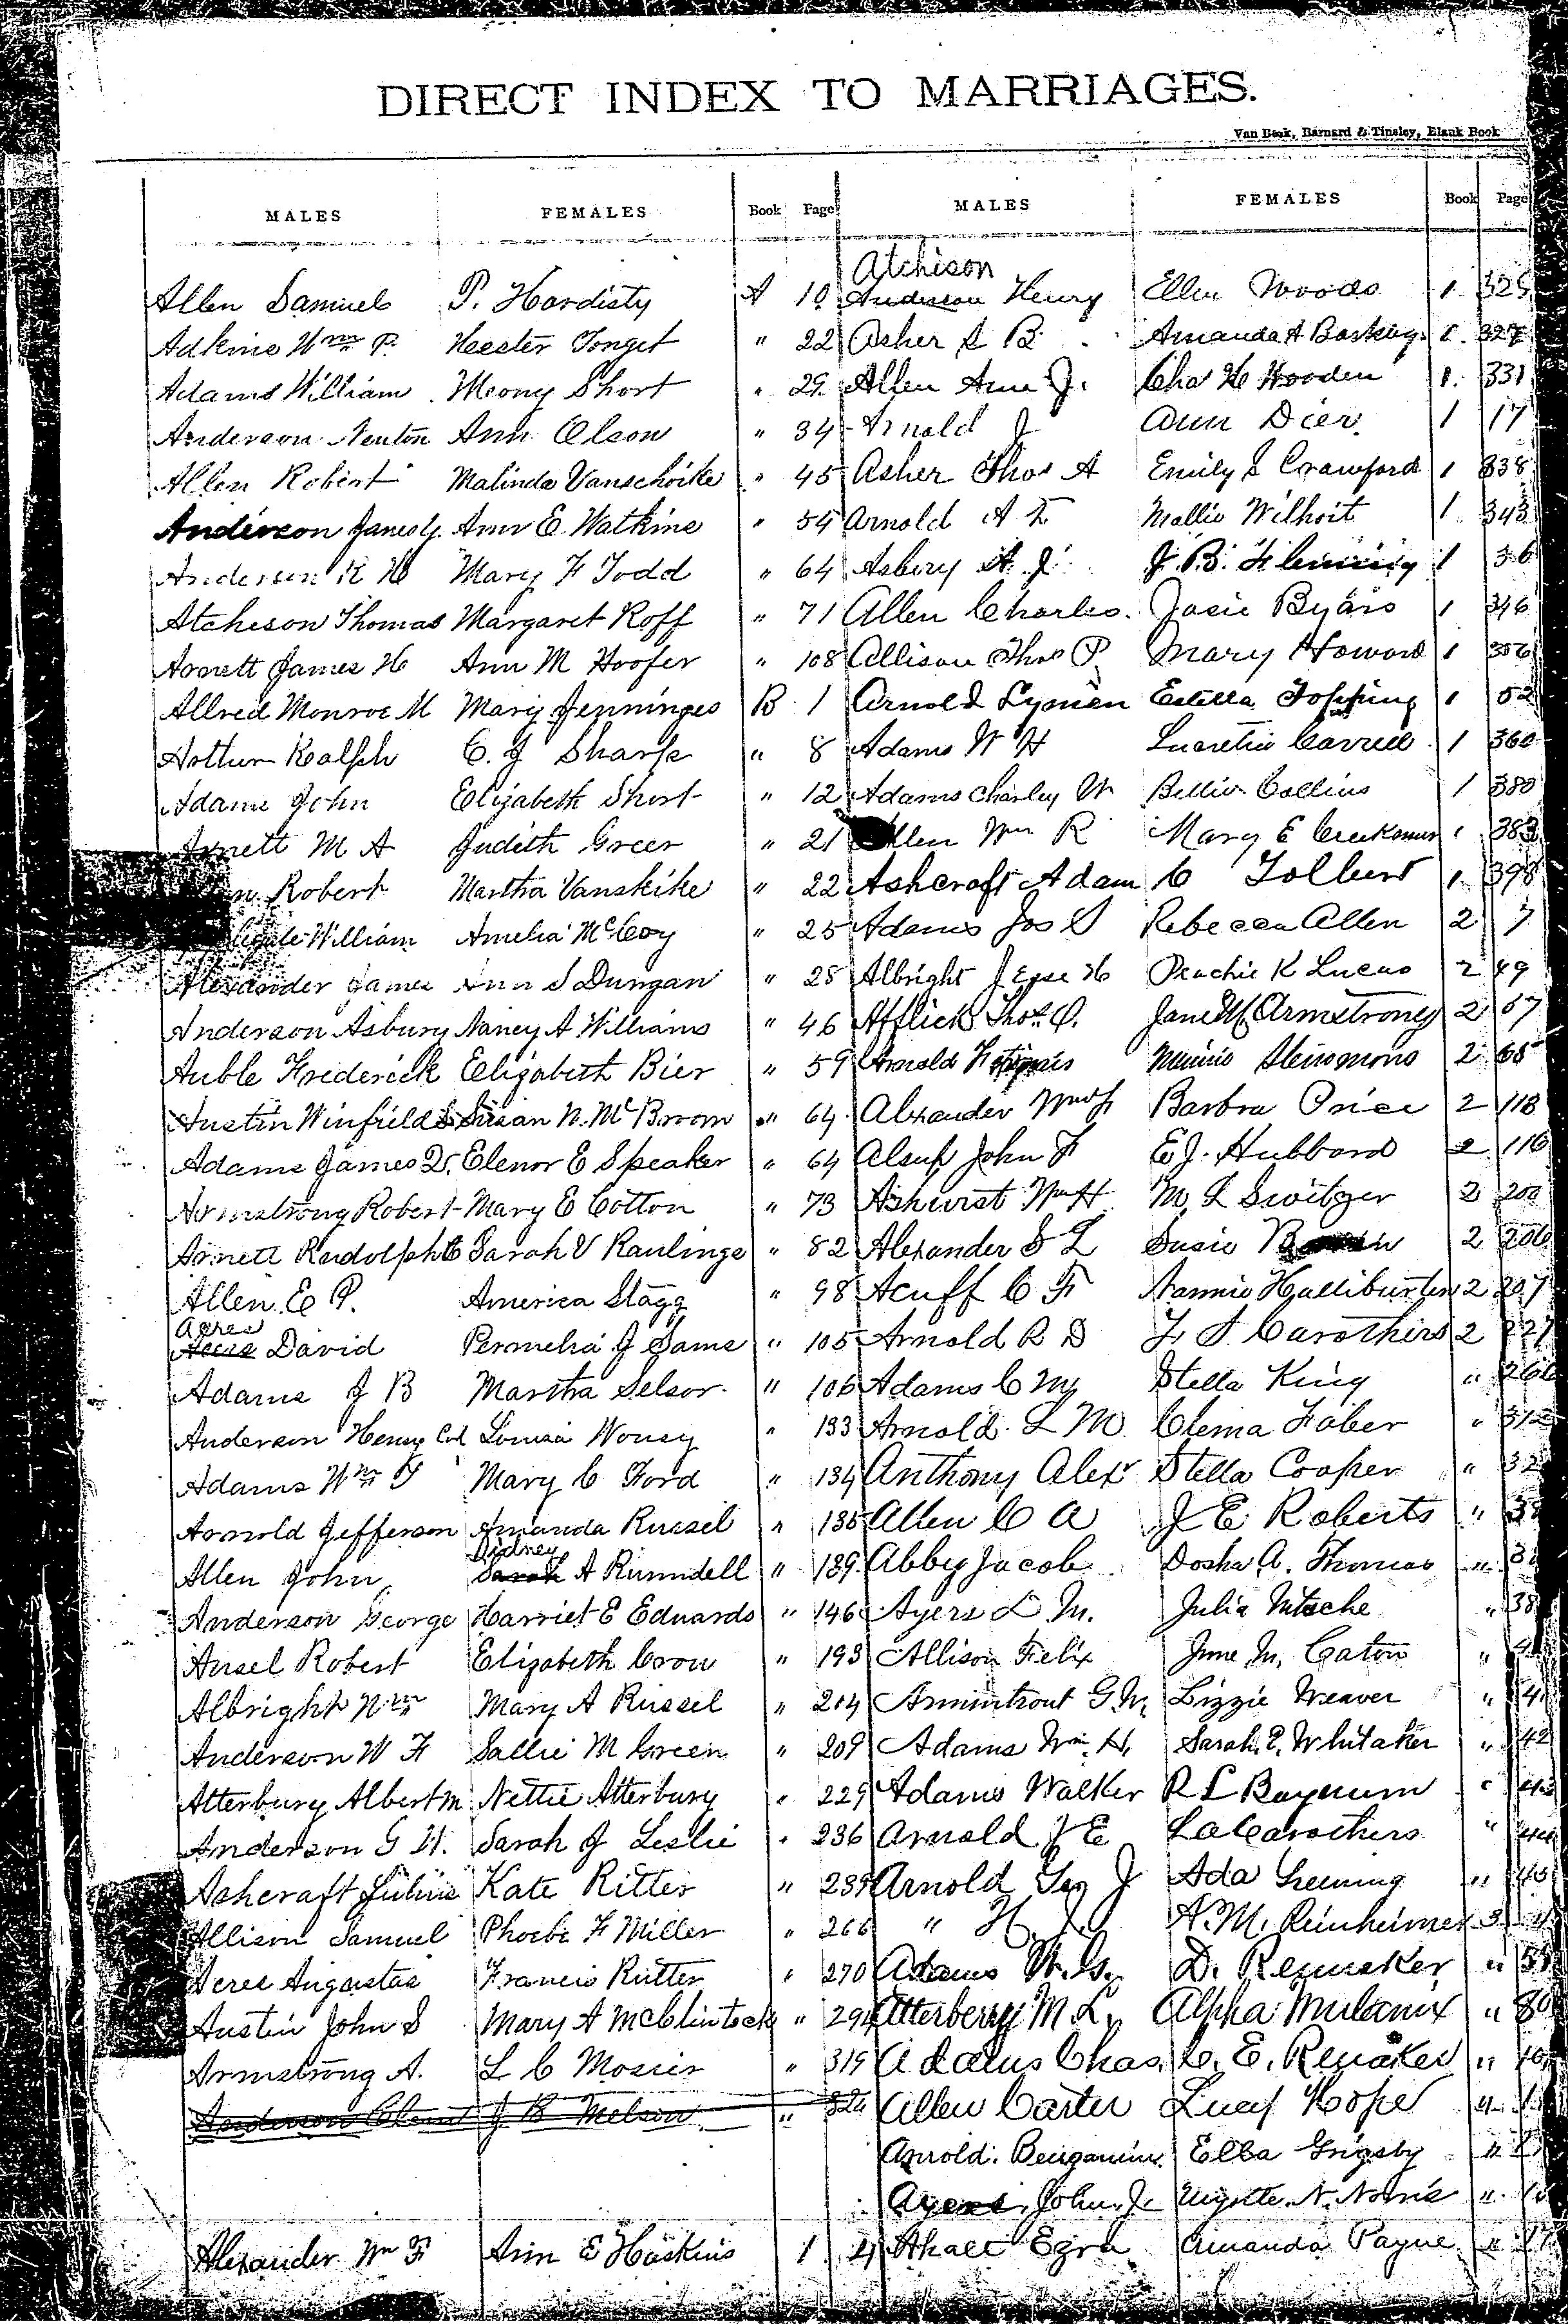 DIRECT INDEX TO MARRIAGES.
Van Beek, Barnard & Tinsley, Blank Book
MALES FEMALES Book Page MALES FEMALES Book Page
Atchison
Allen Samuel P. Hardisty A 10 Anderson Henry Ellen Woods 1 325
Adkins Wm P. Hester " 22 Asher S B Amanda A 1 327
Adams William Short " 29 Allen J. Chas H Wooden 1 331
Anderson Newton Ann Olson " 34 Arnold J Ann Dier 1 17
Allen Robert Malinda Vanschoike " 45 Asher Thos A Emily S Crawford 1 338
Anderson James Y. Ann E. Watkins " 54 Arnold A T Mollie Wilhoit 1 343
Anderson R H Mary F Todd " 64 Asbery A. J. J. B. Flemming 1 36
Atcheson Thomas Margaret Roff " 71 Allen Charles Josie Byars 1 346
Arnett James H Ann M Hoofer " 108 Allison Thos P. Mary Howard 1 356
Allred Monroe M Mary Jenninges B 1 Arnold Lymen Estella Topping 1 52
Arthur Ralph C. J Sharp " 8 Adams W H Lucretia 1 360
Adams John Elizabeth Short " 12 Adams Charley W Collins 1 380
Arnett M A Judith Greer " 21 Allen Wm R Mary E 1 383
Robert Martha Vanskike " 22 Ashcraft Adam C Tolbert 1 398
William Amelia McCoy " 25 Adams Jos S Rebecca Allen 2 7
Alexander James Ann S Dungan " 28 Albright Jesse H K Lucas 2 49
Anderson Asbury Nancy A Williams " 46 Afflick Thos O. Jane M Armstrong 2 67
Auble Frederick Elizabeth Bier " 59 Arnold Minnie 2 68
Austin Winfield S Susan N. McBroom " 64 Alexander Barbra Price 2 118
Adams James Q. Elenor E Speaker " 64 Alsup John F E J. Hubbard 2 116
Armstrong Robert Mary E Cotton " 73 Ashurst Wm H M. L Switzer 2 200
Arnett Rudolph C Sarah V Raulings " 82 Alexander S L Susie 2 206
Allen E P. America Stagg " 98 Acuff C F Nannie Halliburton 2 207
Acres
David Permelia J Sams " 105 Arnold R D Carothers 2 227
Adams J B Martha Selsor " 106 Adams C M Stella King " 266
Anderson Henry Col Louisa " 133 Arnold L M. Clema Faber " 312
Adams Wm T Mary C Ford " 134 Anthony Alexr Stella Cooper " 32
Arnold Jefferson Amanda Russel " 135 Allen C A J E Roberts " 38
Sidney
Allen John Sarah A Runndell " 139 Abby Jacob Dosha A. Thomas "
Anderson George Harriet E Edwards " 146 Ayers L M. Julia Nitsche " 38
Ansel Robert Elizabeth Crow " 193 Allison Felix June M. Caton " 4
Albright Wm Mary A Russel " 204 Armintrout G. W. Lizzie Weaver " 4
Anderson W F Sallie M Green " 209 Adams Wm. H. Sarah E. Whitaker " 42
Atterbury Albert M Nettie Atterbury " 229 Adams Walker R L Baynum " 43
Anderson G W. Sarah J Leslie " 236 Arnold J E L A Carothers " 44
Ashcraft Julius Kate Ritter " 239 Arnold Geo J Ada Greening " 45
Allison Samuel Phoebe F Miller " 266 " H. A. M. Reinheimer 3
Acres Augustas Francis Rutter " 270 Adams W. G. D. Renneker " 55
Austin John S Mary A McClintock " 294 Atterberry M. L. Alpha Mulanix " 80
Armstrong A. L C Mosier " 319 Adams Chas. C. E. Renaker " 10
Anderson J B Melson " 324 Allen Carter Lucy Hope "
Arnold Benjamin Elba Grigsby "
Ayers, John J. N. Norris "
Alexander Wm F Ann E Haskins 1 4 Ahalt Ezra Amanda Payne " 17